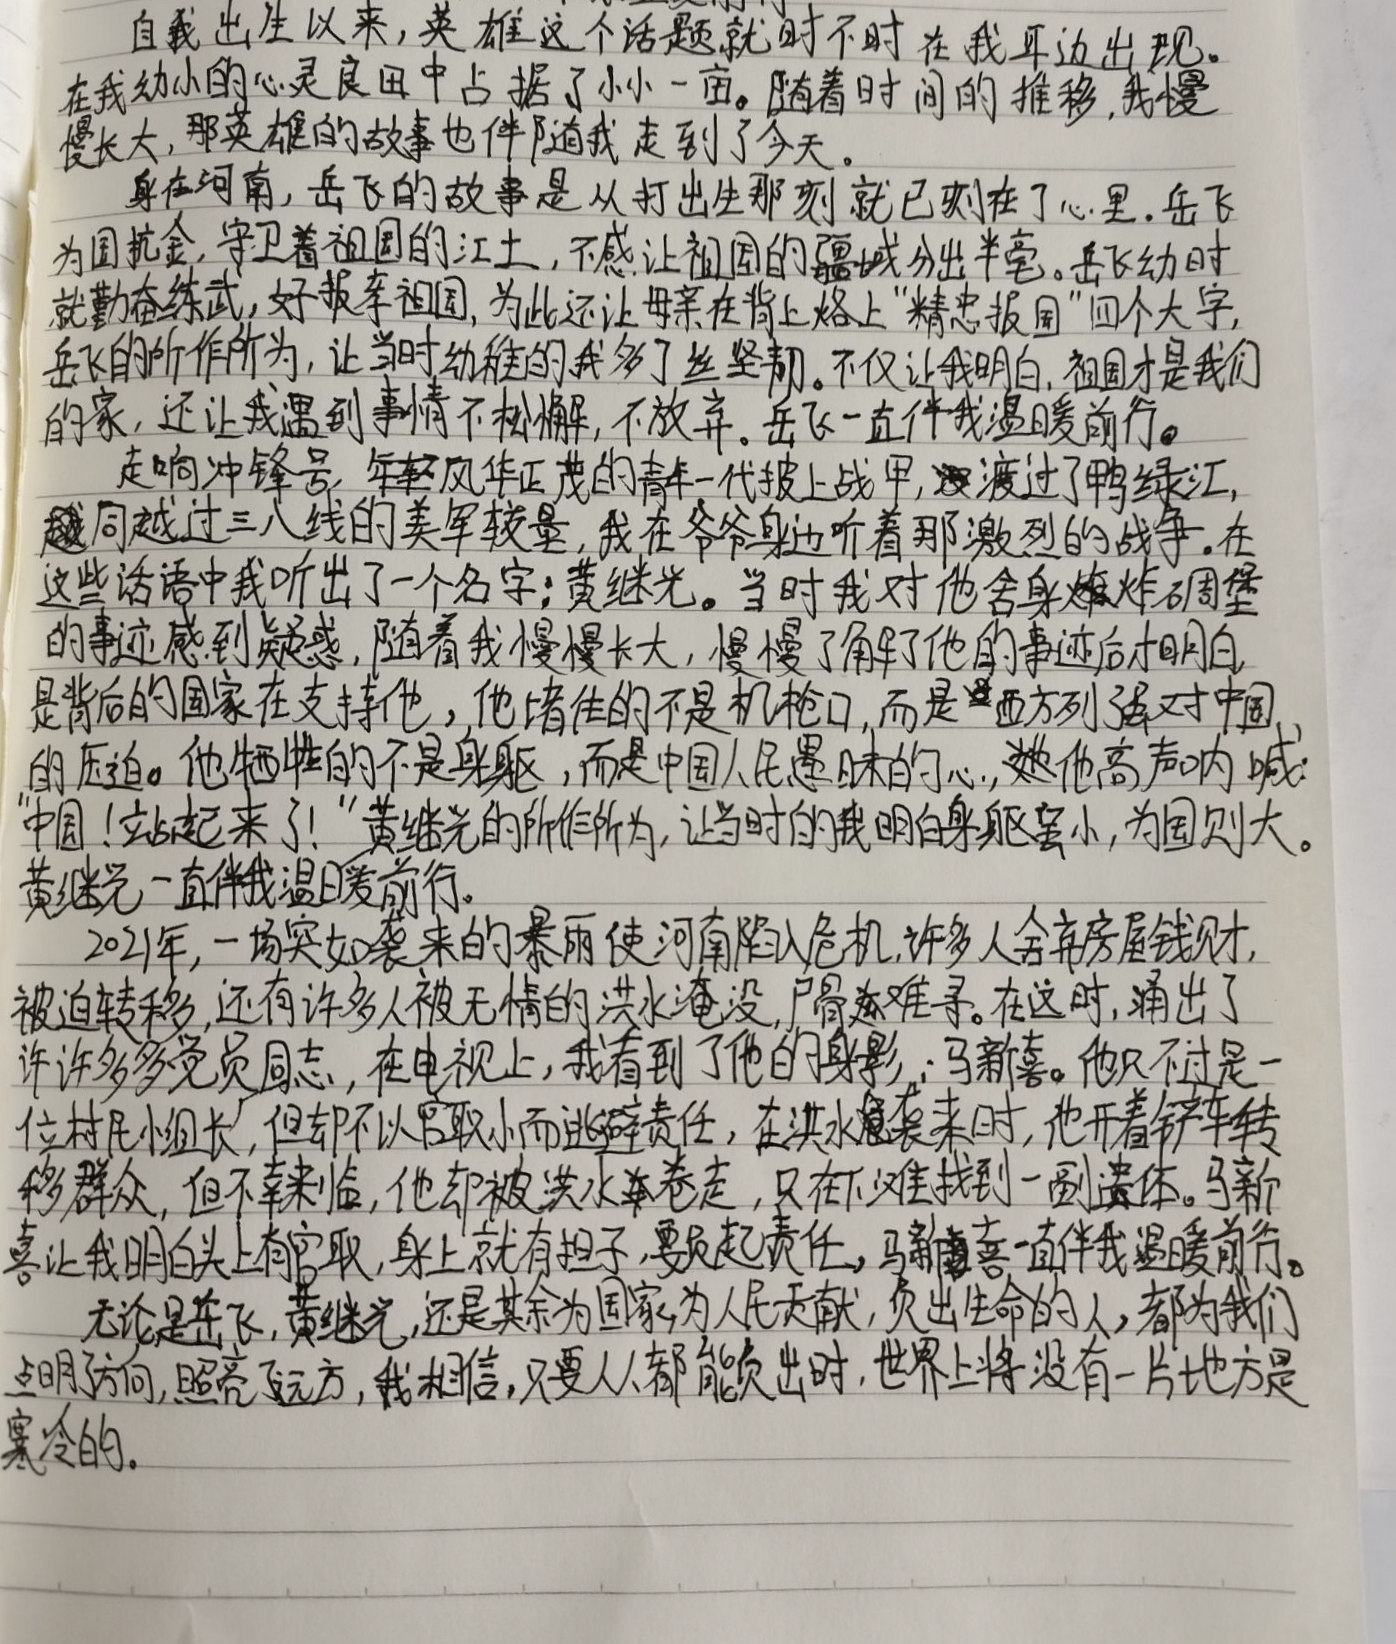 自我出生以来，英雄这个话题就时不时在我耳边出现。
在我幼小的心灵良田中占据了小小一亩。随着时间的推移，我慢
慢长大，那英雄的故事也伴随我走到了今天。
身在河南，岳飞的故事是从打出生那刻就已刻在了心里。岳飞
为国抗金，守卫着祖国的江土，不感让祖国的疆域分出半毫。岳飞幼时
就勤奋练武，好报奉祖国，为此还让母亲在背上烙上“精忠报国”四个大字，
岳飞的所作所为，让当时幼稚的我多了丝坚韧。不仅让我明白，祖国才是我们
的家，还让我遇到事情不松懈，不放弃。岳飞一直伴我温暖前行。
走响冲锋号，年轻风华正茂的青年一代披上战甲，渡过了鸭绿江，
同越过三八线的美军较量，我在爷爷身边听着那激烈的战争。在
这些话语中我听出了一个名字：黄继光。当时我对他舍身炸碉堡
的事迹感到疑惑，随着我慢慢长大，慢慢了解了他的事迹后才明白，
是背后的国家在支持他，他堵住的不是机枪口，而是西方列强对中国
的压迫。他牺牲的不是身躯，而是中国人民愚昧的心，他高声呐喊：
“中国！站起来了！”黄继光的所作所为，让当时的我明白身躯虽小，为国则大。
黄继光一直伴我温暖前行。
2021年，一场突如袭来的暴雨使河南陷入危机，许多人舍弃房屋钱财，
被迫转移，还有许多人被无情的洪水淹没，尸骨难寻。在这时，涌出了
许许多多党员同志，在电视上，我看到了他的身影：马新喜。他只不过是一
位村民小组长，但却不以官职小而逃避责任，在洪水袭来时，他开着铲车转
移群众，但不幸来临，他却被洪水卷走，只在下滩找到一副遗体。马新
喜让我明白头上有官职，身上就有担子，要负起责任，马新喜一直伴我温暖前行。
无论是岳飞，黄继光，还是其余为国家，为人民贡献，负出生命的人，都为我们
点明了方向，照亮了远方，我相信，只要人人都能负出时，世界上将没有一片地方是
寒冷的。